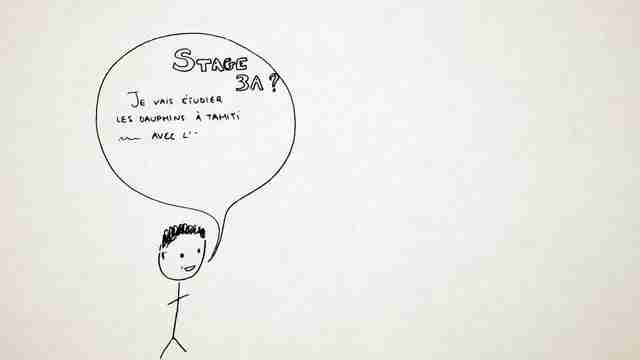 STAGE
3A ?
JE VAIS ÉTUDIER
LES DAUPHINS À TAHITI
AVEC L'